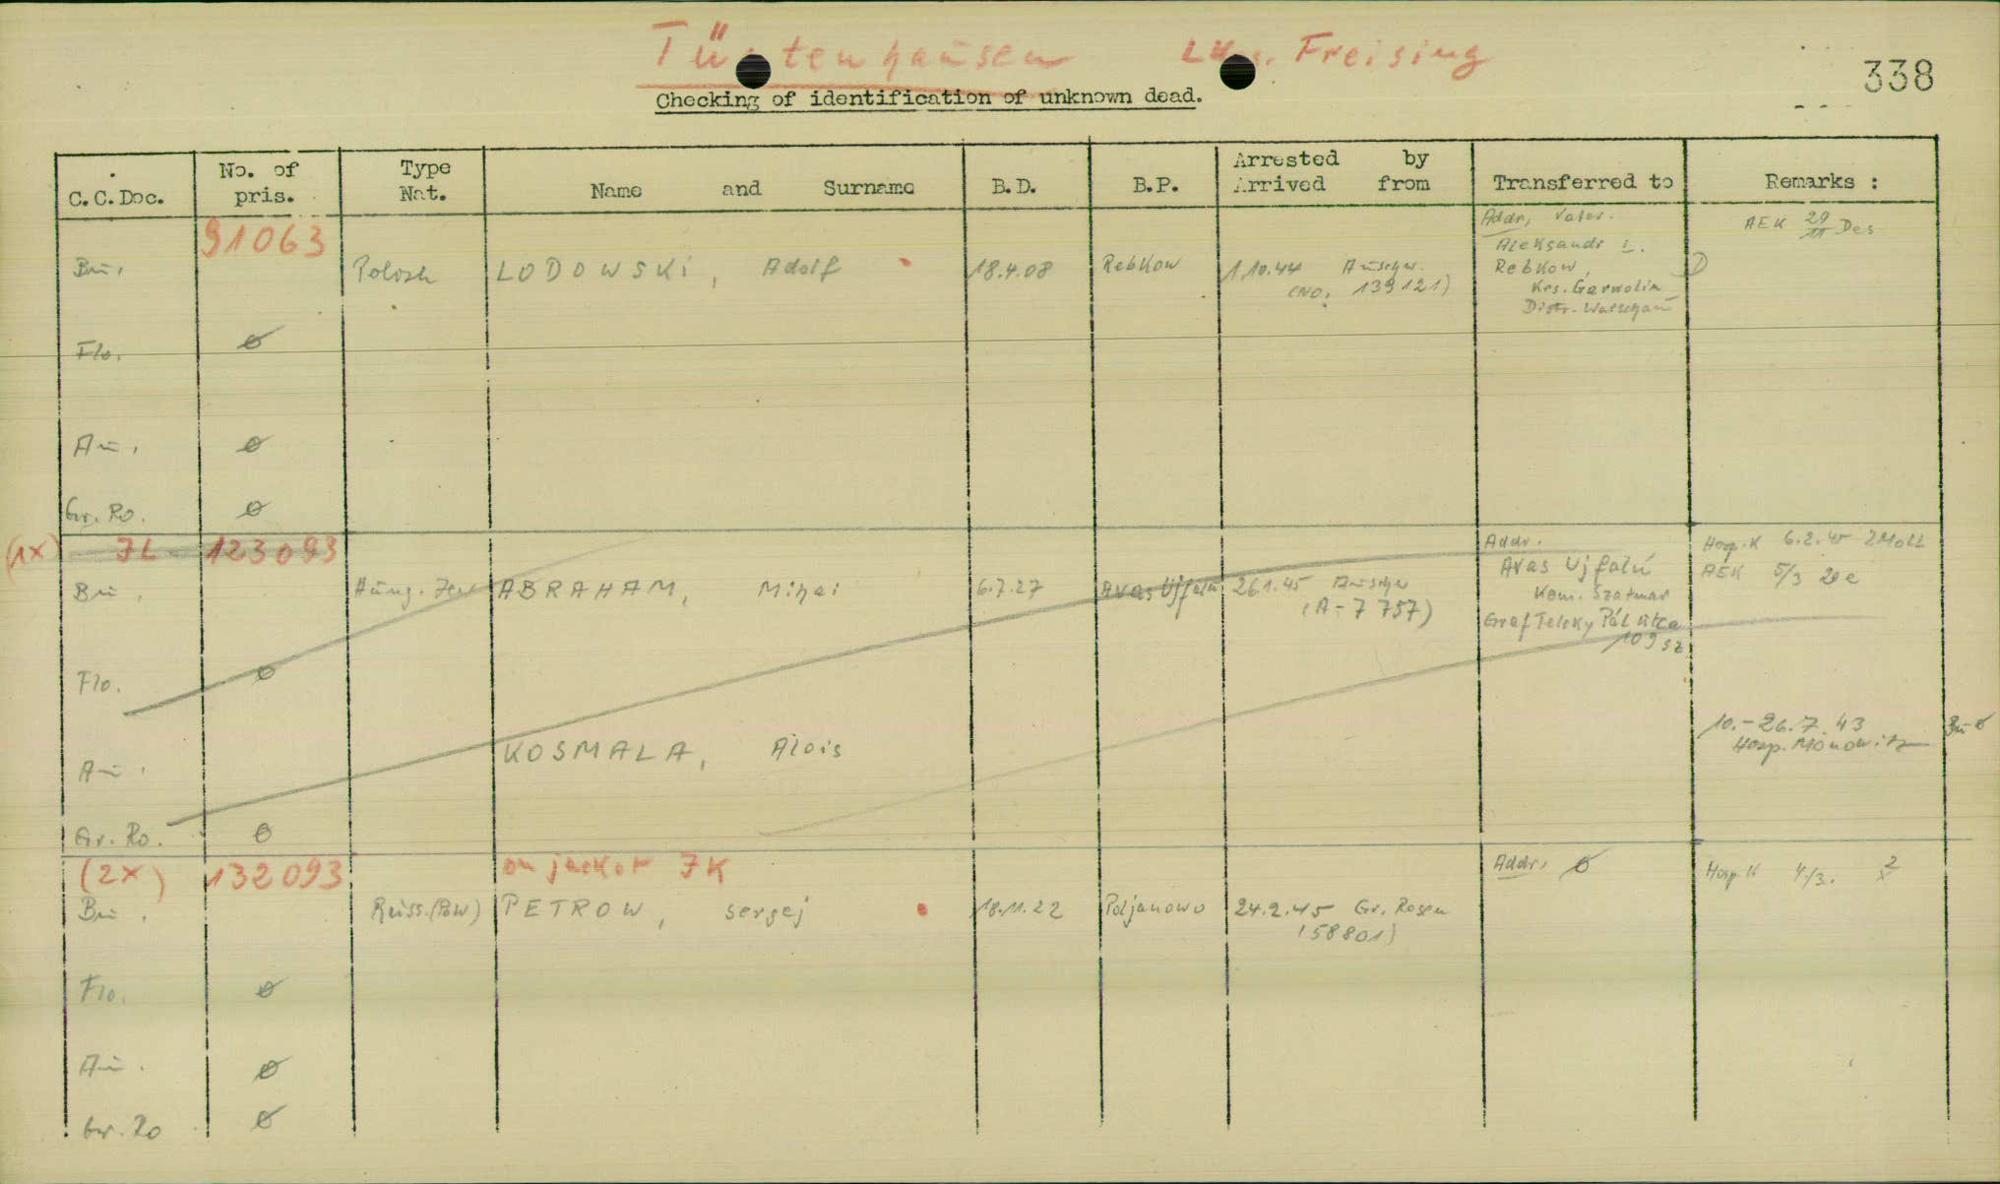 Tü tenhausen Freising
338
Checking of identification of unknown dead.
C.C.Doc. No. of pris. Type Nat. Name and Surname B.D. B.P. Arrested by Arrived from Transferred to Remarks :
91063 Addr. Vater. AEK 29/11 Des
Aleksandr L.
Bu. Polish LODOWSKi, Adolf 18.4.08 Rebkow 1.10.44 Auschw. Rebkow,
(No. 139121) Krs. Garwolin
Distr. Warschau
Flo. ø
Au. ø
Gr. Ro. ø
(1x) JL 123093 Addr. Hosp. K 6.2.45
Avas Ujfalú AEK 5/3
Bu. Hung. Jew ABRAHAM, Mihai 6.7.27 Avas Ujfalu 26.1.45 Auschw Kom. Szatmar
(A-7757) Graf Teleky Pál utca
109 sz
Flo. ø
10.-26.7.43 Bu ø
Au. KOSMALA, Alois Hosp. Monowitz
Gr. Ro. ø
(2x) 132093 on jacket JK Addr. ø Hosp K 4/3.
Bu. Russ.(PoW) PETROW, Sergej 18.11.22 Poljanowo 24.2.45 Gr. Rosen
(58801)
Flo. ø
Au. ø
Gr. Ro ø